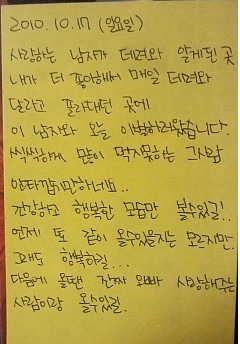 2010.10.17 (일요일)
사랑하는 남자가 데려와 알게된 곳
내가 더 좋아해서 매일 데려와
달라고 졸라대던 곳에
이 남자와 오늘 이별하러왔습니다.
씩씩하게 많이 먹지못하는 그사람
안타깝지만하네요..
건강하고 행복한 모습만 볼수있길..
언제 또 같이 올수있을지는 모르지만
그래도 행복하길...
다음에 올땐 진짜 오빠 사랑해주는
사람이랑 올수있길.